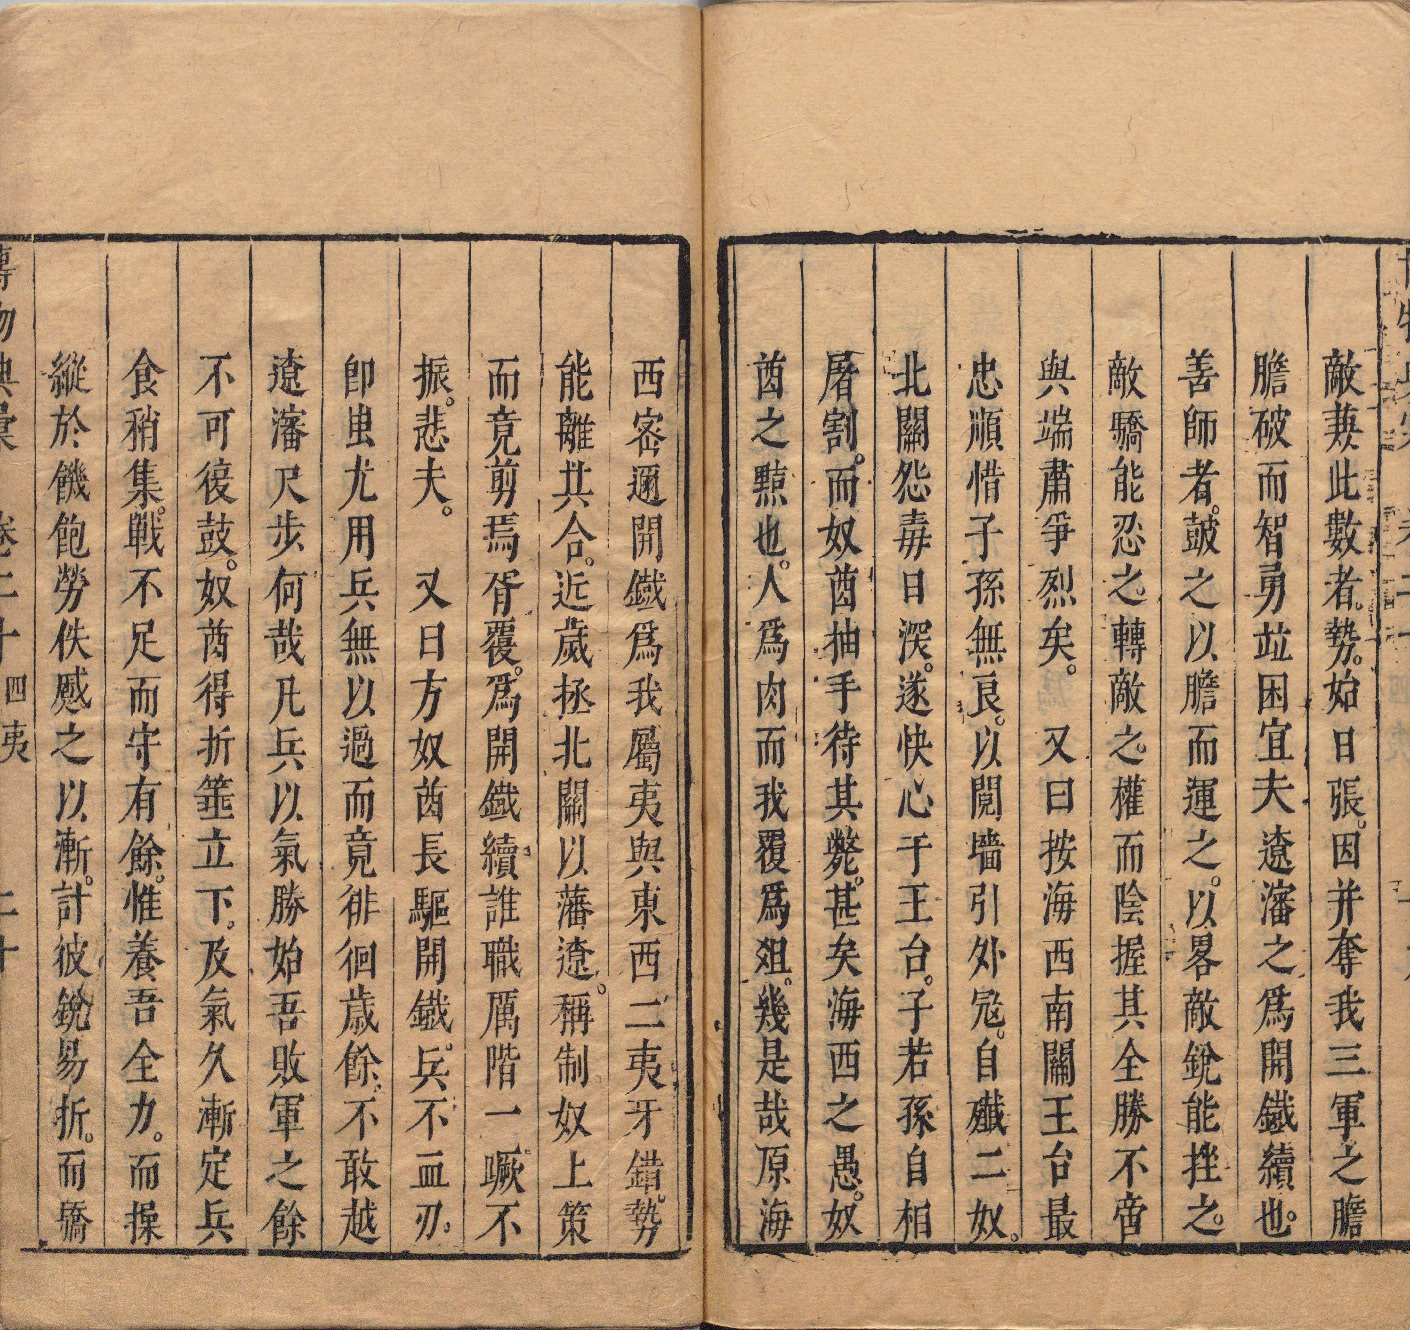 敵葁此數者。勢。始日張。因并奪我三軍之膽
膽破而智勇竝困宜夫遼瀋之爲開鐵續也。
善師者。皷之以膽而運之。以畧敵銳能挫之。
敵驕能忍之。轉敵之權而陰握其全勝不啻
與端肅爭烈矣。又曰按海西南關王台最
忠順惜子孫無良。以鬩墻引外冦。自殱二奴。
北關怨毒日深。遂快心于王台。子若孫自相
屠割。而奴酋抽手待其斃。甚矣海西之愚。奴
酋之黠也。人爲肉而我覆爲俎。幾是哉原海
西密邇開鐵爲我屬夷與東西二夷牙錯。勢
能離其合。近歲拯北關以藩遼。稱制奴上策
而竟剪焉胥覆。爲開鐵續誰職厲階一蹶不
振。悲夫。又曰方奴酋長驅開鐵。兵不血刃。
卽蚩尤用兵無以過而竟徘徊歲餘。不敢越
遼瀋尺步何哉凡兵以氣勝始吾敗軍之餘
不可復鼓。奴酋得折箠立下。及氣久漸定兵
食稍集。戰不足而守有餘。惟養吾全力。而操
縱於饑飽勞佚慼之以漸。計彼銳易折。而驕
博物典彙 卷二十 四夷 二十